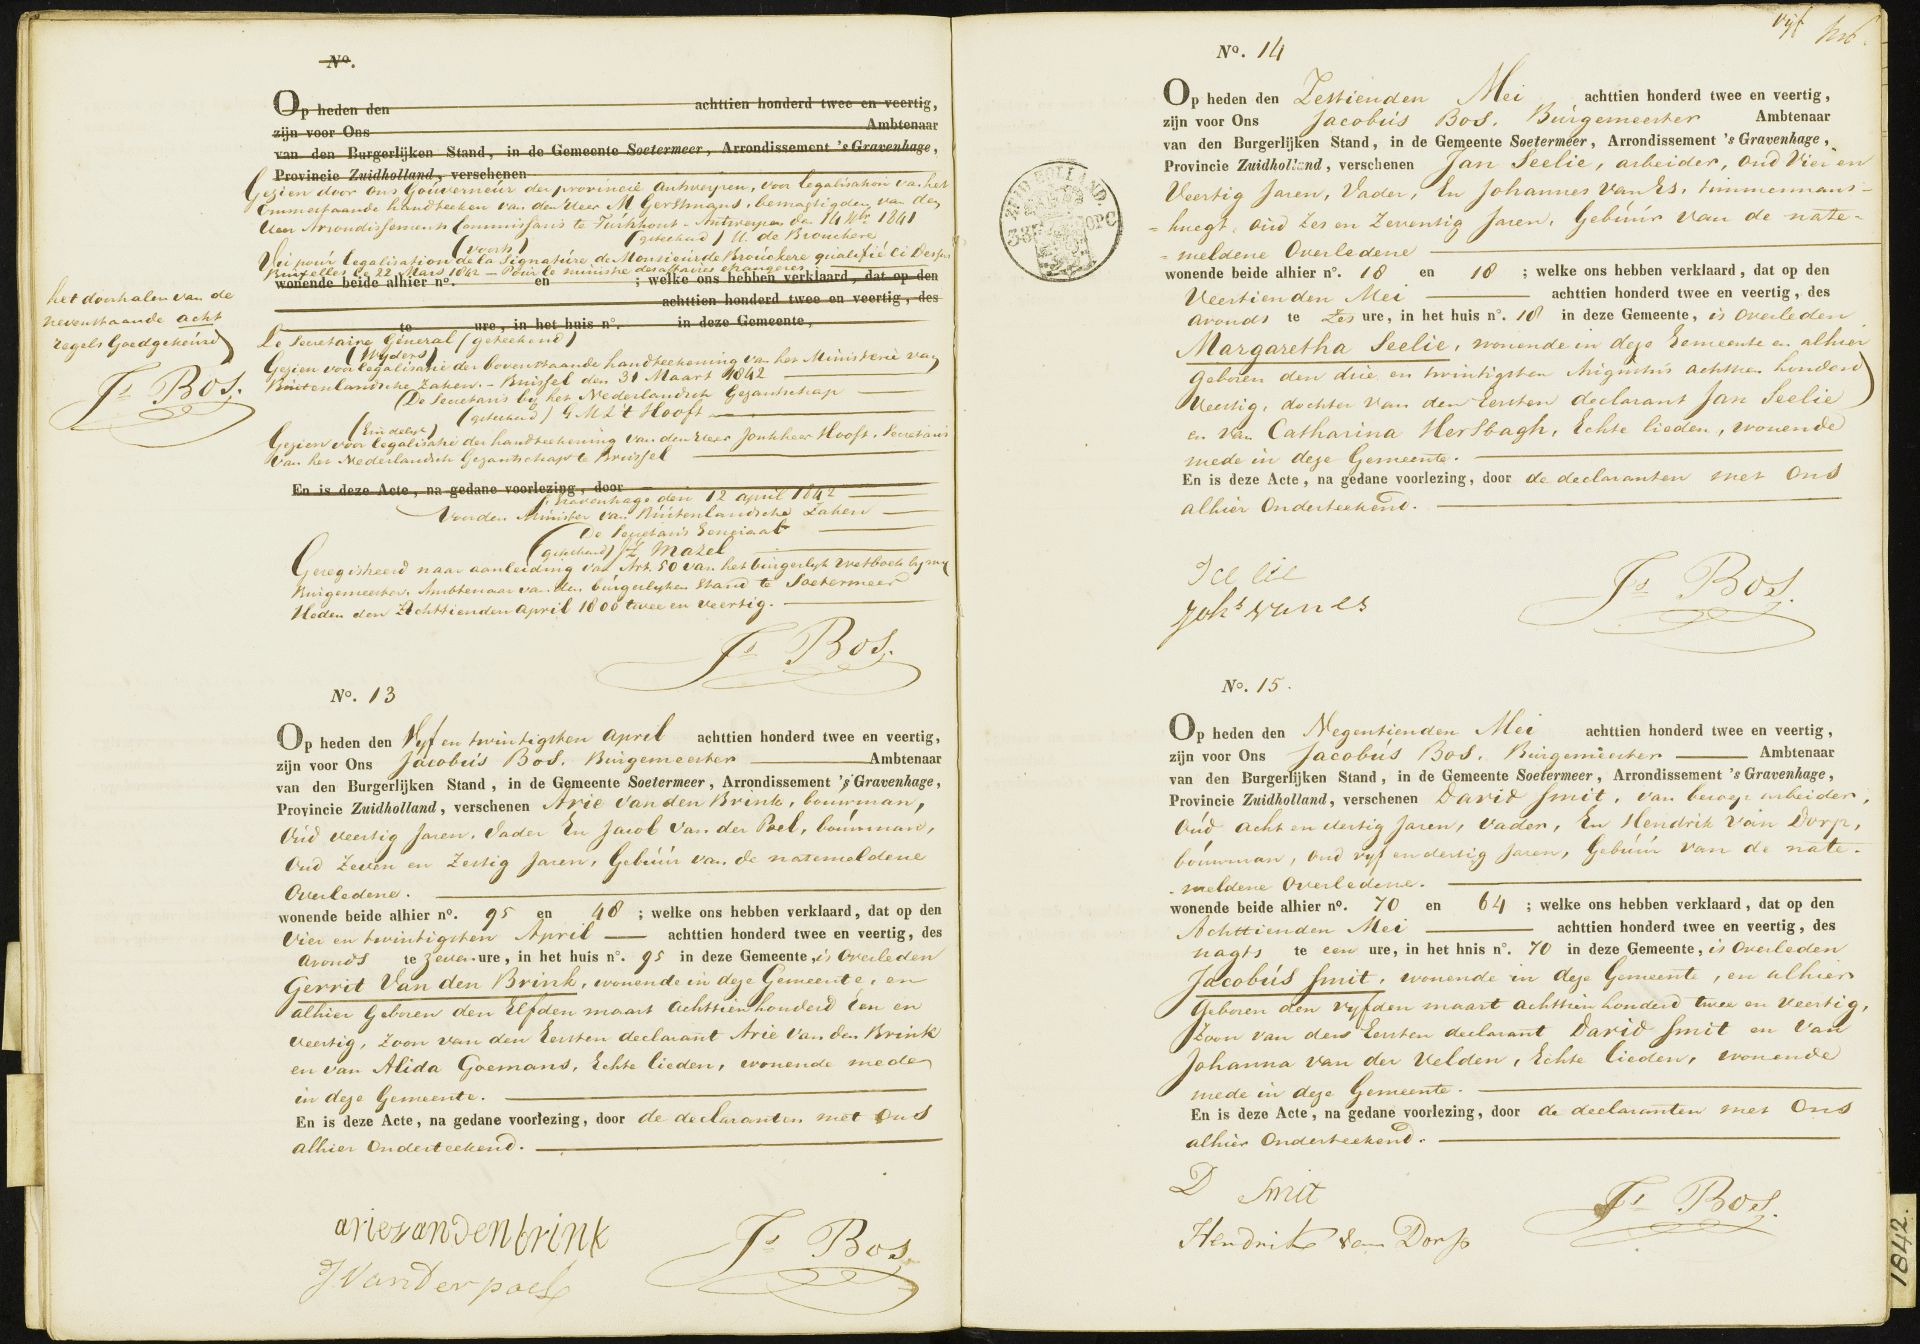 No.
Op heden den achttien honderd twee en veertig,
zijn voor Ons Ambtenaar
van den Burgerlijken Stand, in de Gemeente Soetermeer, Arrondissement 's Gravenhage,
Provincie Zuidholland, verschenen
Gezien door ons Gouverneur der provincie Antwerpen, voor legalisation van het
ommestaande handteeken van den Heer M Gerstmans, bemagtigden van den
Heer Arrondissements Commissaris te Turnhout. Antwerpen den 14 1841
(geteekend) H. de Brouckere
(voorts)
Vu pour legalisation de la Signature de Monsieur de Brouckere qualifié ci Dessus
Bruxelles le 22 Mars 1842 - Pour le ministre des affaires etrangeres
wonende beide alhier no. en ; welke ons hebben verklaard, dat op den
achttien honderd twee en veertig, des
te ure, in het huis no. in deze Gemeente,
Le Secretaire Général (geteekend)
(Wyders)
Gezien voor legalisatie der bovenstaande handteekening van het Ministerie van
Buitenlandsche Zaken. - Brussel den 31 Maart 1842
(De Secretaris bij het Nederlandsch Gezantschap
(geteekend) G M 't Hooft
(Eindelyk)
Gezien voor legalisatie der handteekening van den Heer Jonkheer Hooft, Secretaris
van het Nederlandsch Gezantschap te Brussel
En is deze Acte, na gedane voorlezing, door
's Gravenhage den 12 april 1842
Voor den Minister van Buitenlandsche Zaken
De Secretaris Generaal
(geteekend) Mazel
Geregistreerd naar aanleiding van Art. 50 van het burgerlyk wetboek by my
Burgemeester, Ambtenaar van den burgerlyken stand te Soetermeer
Heden den Achttienden April 1800 twee en veertig.
Js Bos.
het doorhalen van de
nevenstaande acht
regels Goedgekeurd
Js Bos.
No. 13
Op heden den Vyf en twintigsten April achttien honderd twee en veertig,
zijn voor Ons Jacobus Bos. Burgemeester Ambtenaar
van den Burgerlijken Stand, in de Gemeente Soetermeer, Arrondissement 's Gravenhage,
Provincie Zuidholland, verschenen Arie van den Brink, bouwman,
Oud veertig Jaren, Vader En Jacob van der Poel, bouwman,
Oud Zeven en Zestig Jaren, Gebuur van de natemeldene
Overledene.
wonende beide alhier no. 95 en 48 ; welke ons hebben verklaard, dat op den
Vier en twintigsten April achttien honderd twee en veertig, des
avonds te Zeven ure, in het huis no. 95 in deze Gemeente, is Overleden
Gerrit Van den Brink, wonende in deze Gemeente, en
alhier Geboren den Elfden maart Achttienhonderd een en
veertig, Zoon van den Eersten declarant Arie Van den Brink
en van Alida Goemans, Echte lieden, wonende mede
in deze Gemeente.
En is deze Acte, na gedane voorlezing, door de declaranten met Ons
alhier Onderteekend.
arievandenbrink
J VanDerpoel
Js Bos
vyf
No. 14
Op heden den Zestienden Mei achttien honderd twee en veertig,
zijn voor Ons Jacobus Bos. Burgemeester Ambtenaar
van den Burgerlijken Stand, in de Gemeente Soetermeer, Arrondissement 's Gravenhage,
Provincie Zuidholland, verschenen Jan Seelie, arbeider, Oud Vier en
Veertig Jaren, Vader, En Johannes Van Es, timmermans-
-knegt, Oud Zes en Zeventig Jaren, Gebuur van de nate-
-meldene Overledene
wonende beide alhier no. 18 en 18 ; welke ons hebben verklaard, dat op den
Veertienden Mei achttien honderd twee en veertig, des
avonds te Zes ure, in het huis no. 18 in deze Gemeente, is Overleden
Margaretha Seelie, wonende in deze Gemeente en alhier
Geboren den drie en twintigsten Augustus achttien honderd
Veertig, dochter van den Eersten declarant Jan Seelie
en van Catharina Hersbagh, Echte lieden, wonende
mede in deze Gemeente.
En is deze Acte, na gedane voorlezing, door de declaranten met Ons
alhier Onderteekend.
ZUID HOLLAND.
Joh.s van es
Js Bos.
No. 15.
Op heden den Negentienden Mei achttien honderd twee en veertig,
zijn voor Ons Jacobus Bos. Burgemeester Ambtenaar
van den Burgerlijken Stand, in de Gemeente Soetermeer, Arrondissement 's Gravenhage,
Provincie Zuidholland, verschenen David Smit, van beroep arbeider,
Oud acht en dertig Jaren, Vader, En Hendrik van Dorp,
bouwman, Oud vyf en dertig Jaren, Gebuur van de nate-
-meldene Overledene.
wonende beide alhier no. 70 en 64 ; welke ons hebben verklaard, dat op den
Achttienden Mei achttien honderd twee en veertig, des
nagts te een ure, in het hnis no. 70 in deze Gemeente, is Overleden
Jacobus Smit, wonende in deze Gemeente, en alhier
Geboren den vyfden maart achttien honderd twee en veertig,
Zoon van den Eersten declarant David Smit en van
Johanna van der Velden, Echte lieden, wonende
mede in deze Gemeente.
En is deze Acte, na gedane voorlezing, door de declaranten met Ons
alhier Onderteekend.
D Smit
Hendrik van Dorp
Js Bos.
1842.